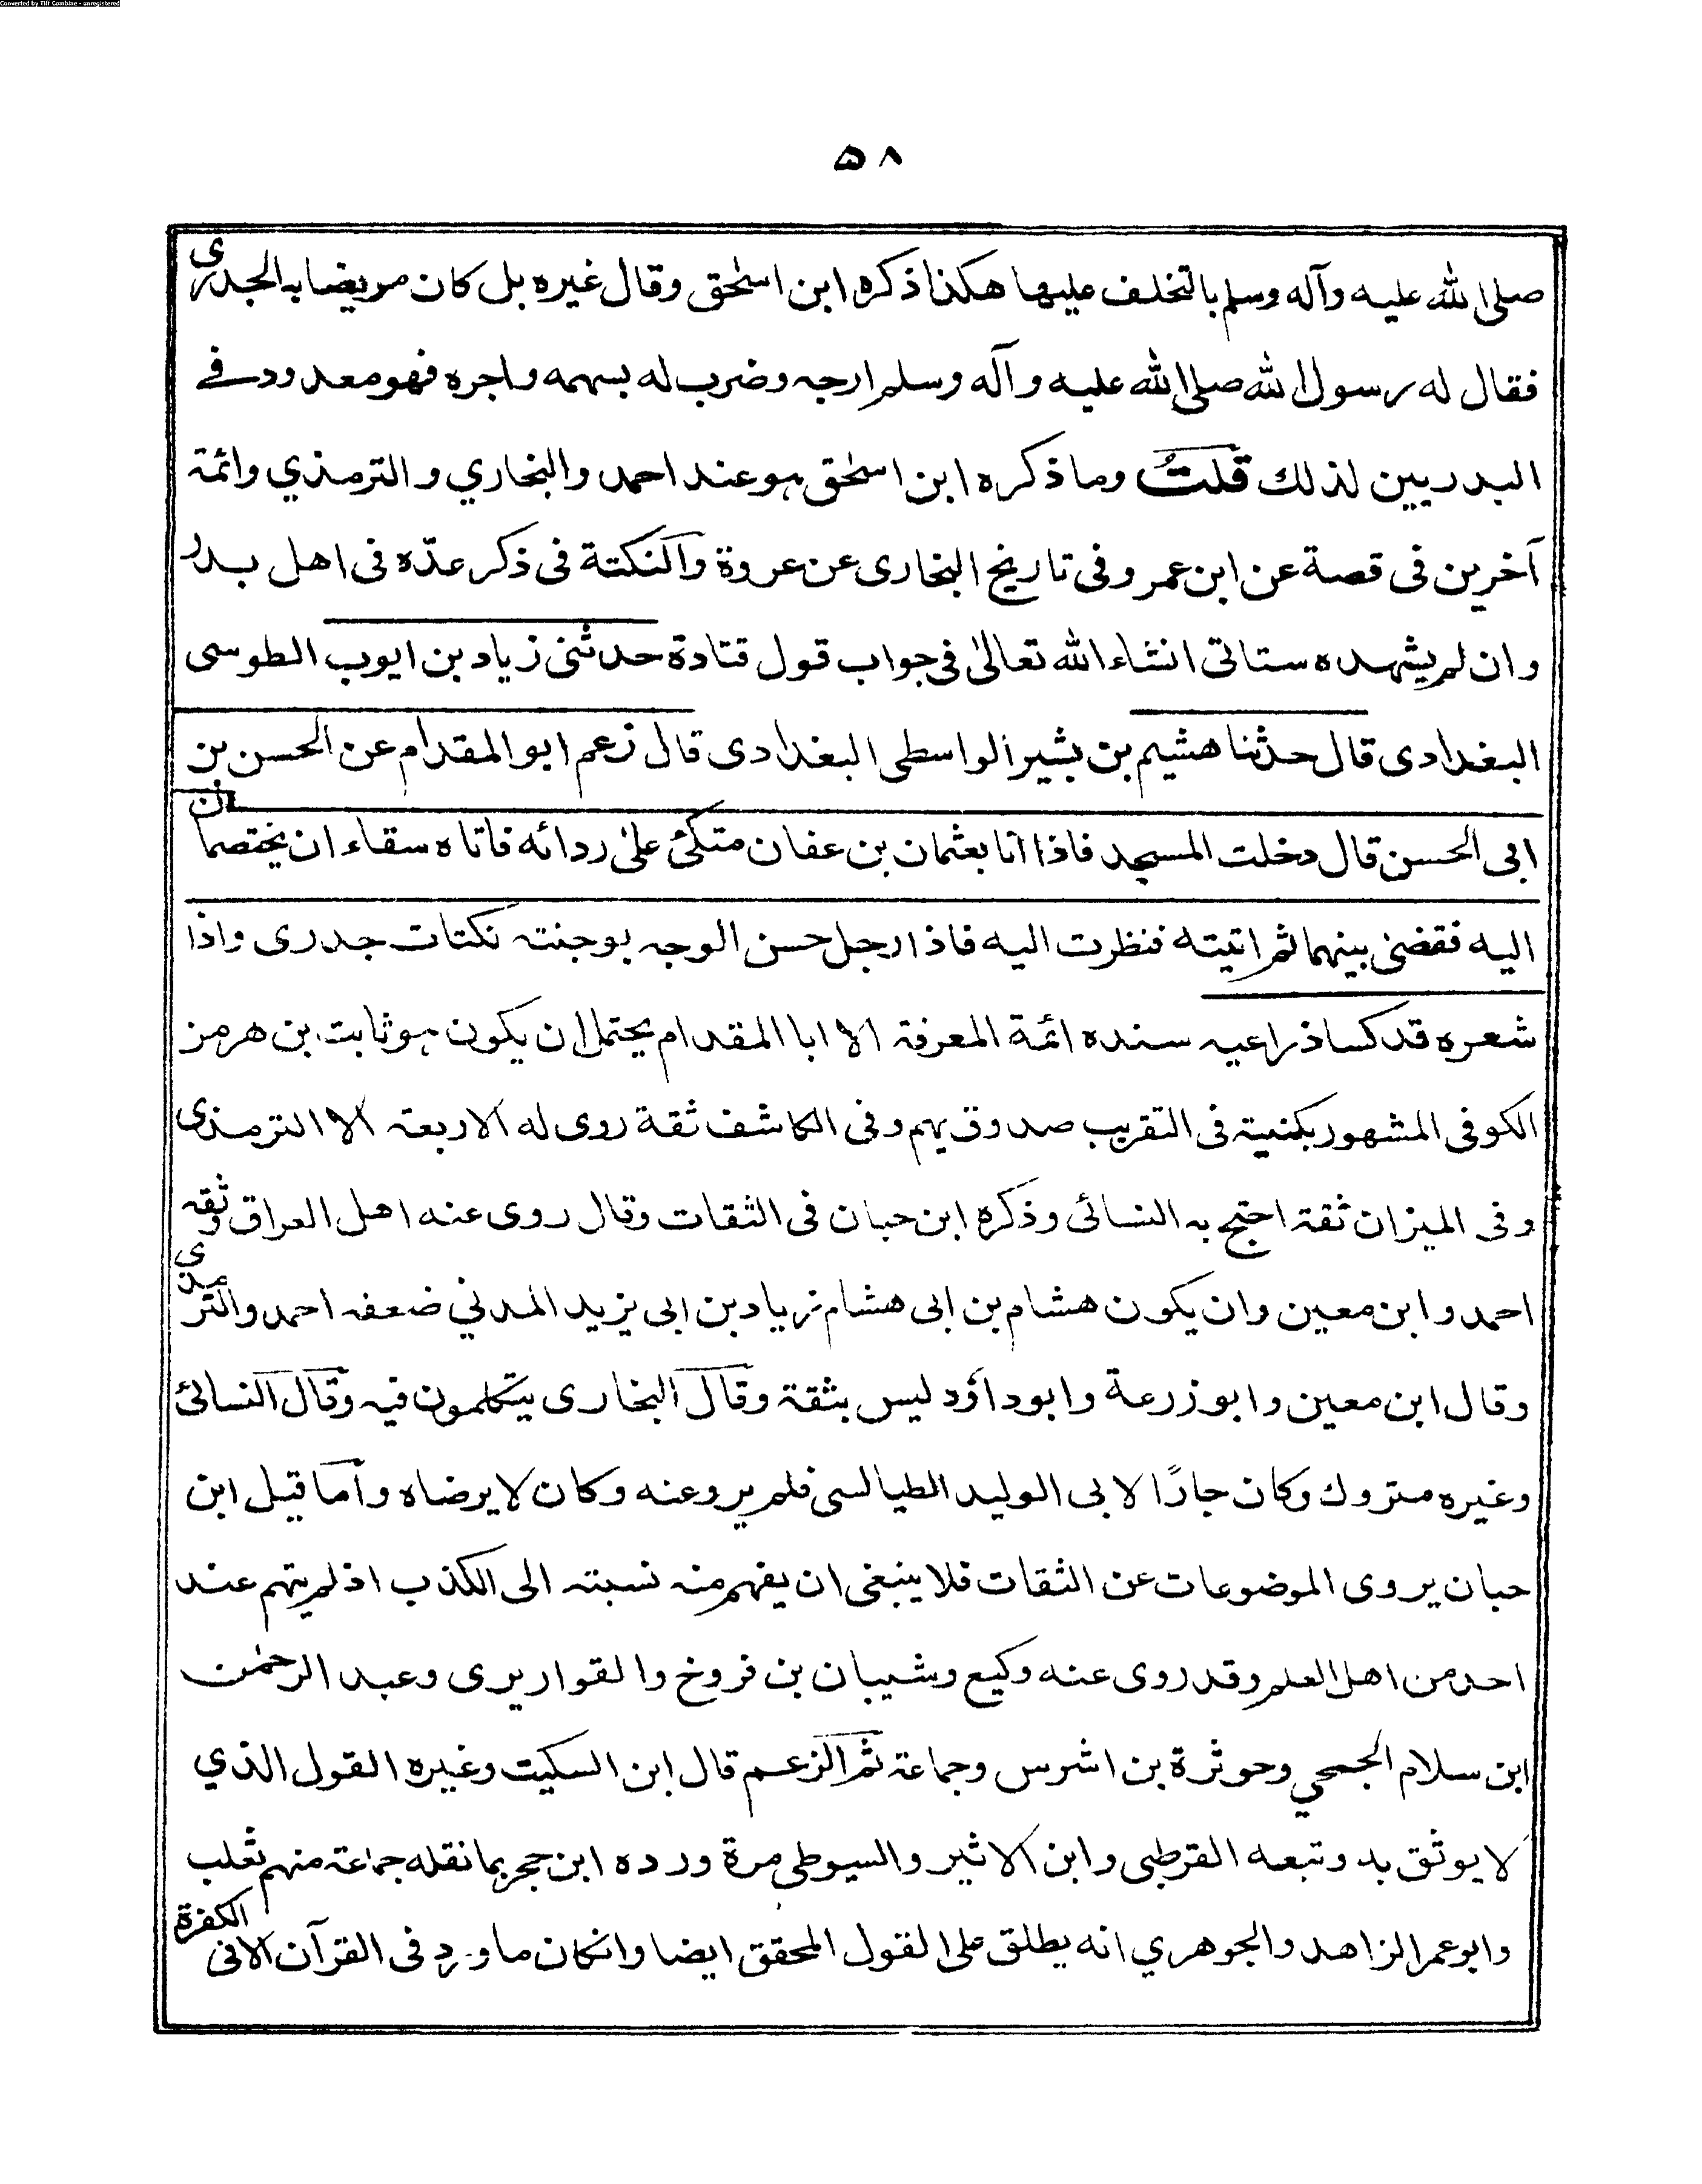 Converted by Tiff Combine - unregistered
٥٨
صلى الله عليه وآله وسلم بالتخلف عليها هكذا ذكره ابن اسحٰق وقال غيره بل كان مريضا به الجدرى
فقال له رسول الله صلى الله عليه وآله وسلم ارجه وضرب له بسهمه واجره فهو معدود فے
البدريين لذلك قلت وما ذكره ابن اسحٰق هو عند احمد والبخاري والترمذي وائمة
آخرين فى قصة عن ابن عمر وفى تاريخ البخارى عن عروة والنكتة فى ذكر عدّه فى اهل بدر
وان لم يشهده ستاتى انشاء الله تعالىٰ فى جواب قول قتادة حدثنى زياد بن ايوب الطوسى
البغدادى قال حدثنا هشيم بن بشير الواسطى البغدادى قال زعم ابو المقدام عن الحسن بن
ابى الحسن قال دخلت المسجد فاذا انا بعثمان بن عفان متكئ علىٰ ردائه فاتاه سقاءان يختصمان
اليه فقضىٰ بينهما ثم اتيته فنظرت اليه فاذا رجل حسن الوجه بوجنته نكتات جدرى واذا
شعره قد كسا ذراعيه سنده ائمة المعرفة الا ابا المقدام يحتمل ان يكون هو ثابت بن هرمز
الكوفى المشهور بكنيته فى التقريب صدوق يهم وفى الكاشف ثقة روى له الاربعة الا الترمذى
وفى الميزان ثقة احتج به النسائى وذكره ابن حبان فى الثقات وقال روى عنه اهل العراق وثقه
احمد وابن معين وان يكون هشام بن ابى هشام زياد بن ابى يزيد المدني ضعفه احمد والترمذي
وقال ابن معين وابو زرعة وابو داؤد ليس بثقة وقال البخارى يتكلمون فيه وقال النسائى
وغيره متروك وكان جارًا لابى الوليد الطيالسى فلم يرو عنه وكان لا يرضاه وأما قيل ابن
حبان يروى الموضوعات عن الثقات فلا ينبغى ان يفهم منه نسبته الى الكذب اذ لم يتهم عند
احد من اهل العلم وقد روى عنه وكيع وشيبان بن فروخ والقواريرى وعبد الرحمٰن
ابن سلام الجمحي وحوثرة بن اشرس وجماعة ثم الزعم قال ابن السكيت وغيره القول الذي
لا يوثق به وتبعه القرطبى وابن الاثير والسيوطى مرة ورده ابن حجر بما نقله جماعة منهم ثعلب
وابو عمر الزاهد والجوهري انه يطلق على القول المحقق ايضا وانكان ما ورد فى القرآن الا فى الكفرة